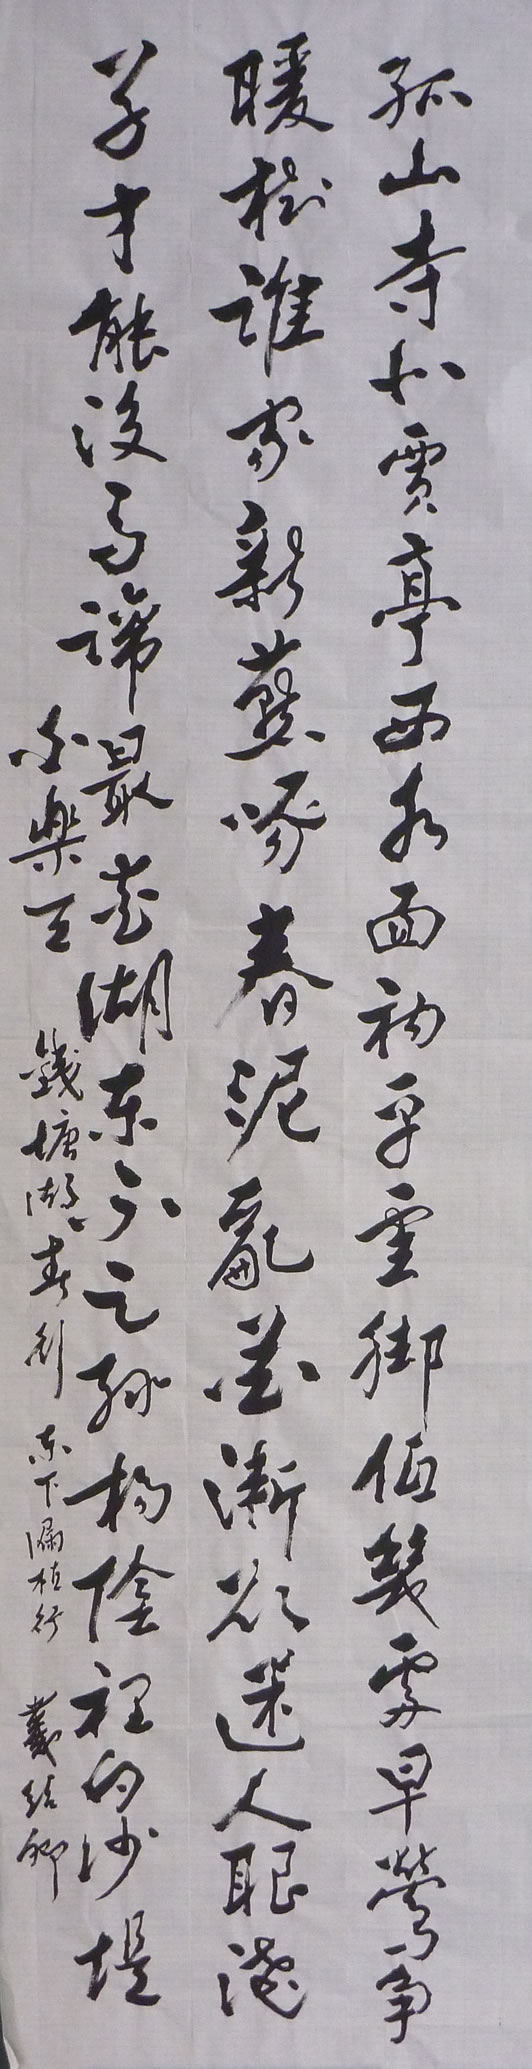 孤山寺北賈亭西水面初平雲腳低幾處早鶯爭
暖樹誰家新燕啄春泥亂花漸欲迷人眼淺
草才能沒馬蹄最愛湖東不足綠楊陰裡白沙堤
白樂天 錢塘湖春行 東下漏植行